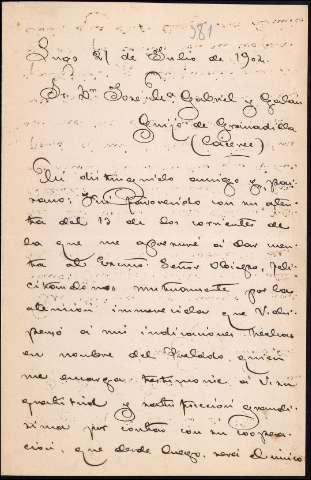 381
Lugo 21 de Julio de 1902.
Sr. Dn. José Ma. Gabriel y Galán
Guijo de Granadilla
(Cáceres)
Mi distinguido amigo y pai-
sano: Fuí favorecido con su aten-
ta del 15 de los corrientes de
la que me apresuré a dar cuen-
ta al Excmo. Señor Obispo, feli-
citándonos mutuamente por la
atención inmerecida que V. dis-
pensó a mi indicaciones hechas
en nombre del Prelado, quien
me encarga testimonie a V. su
gratitud y satisfacción grandí-
sima por contar con su coopera-
ción, que desde luego, será el único